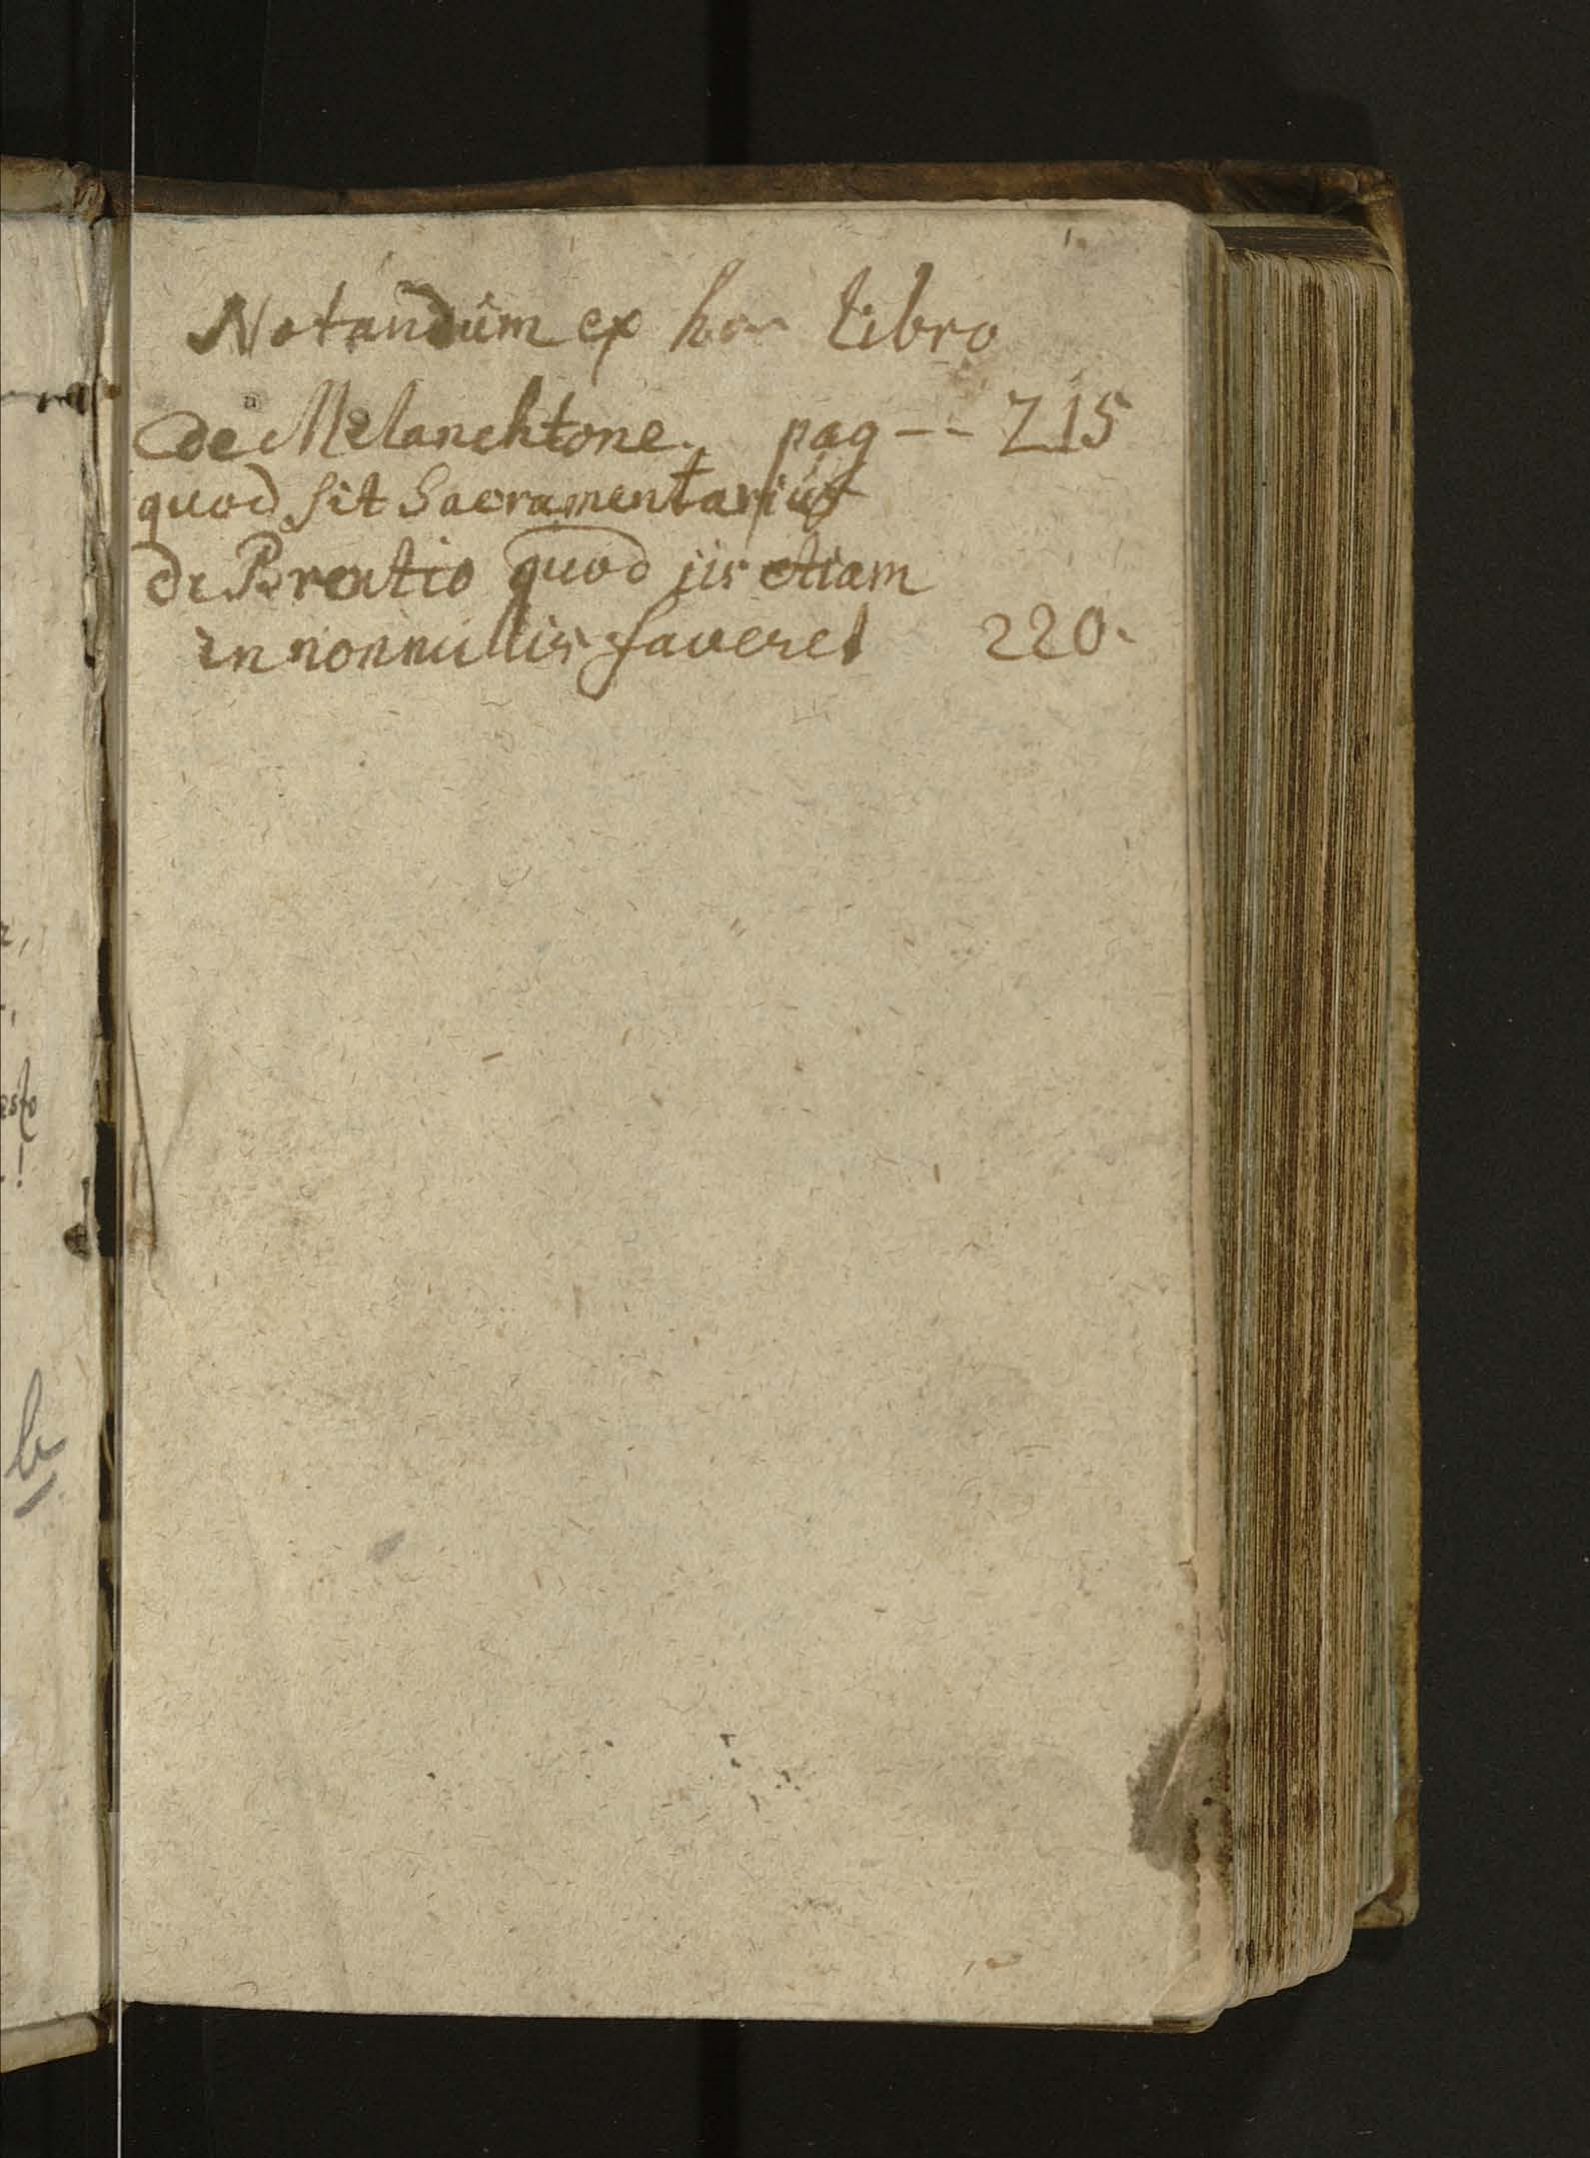 Notandum ex hoc libro
de Melanchtone. pag -- 215
quod sit Sacramentarius
de Brentio quod iis etiam
in nonnullis faveret 220.